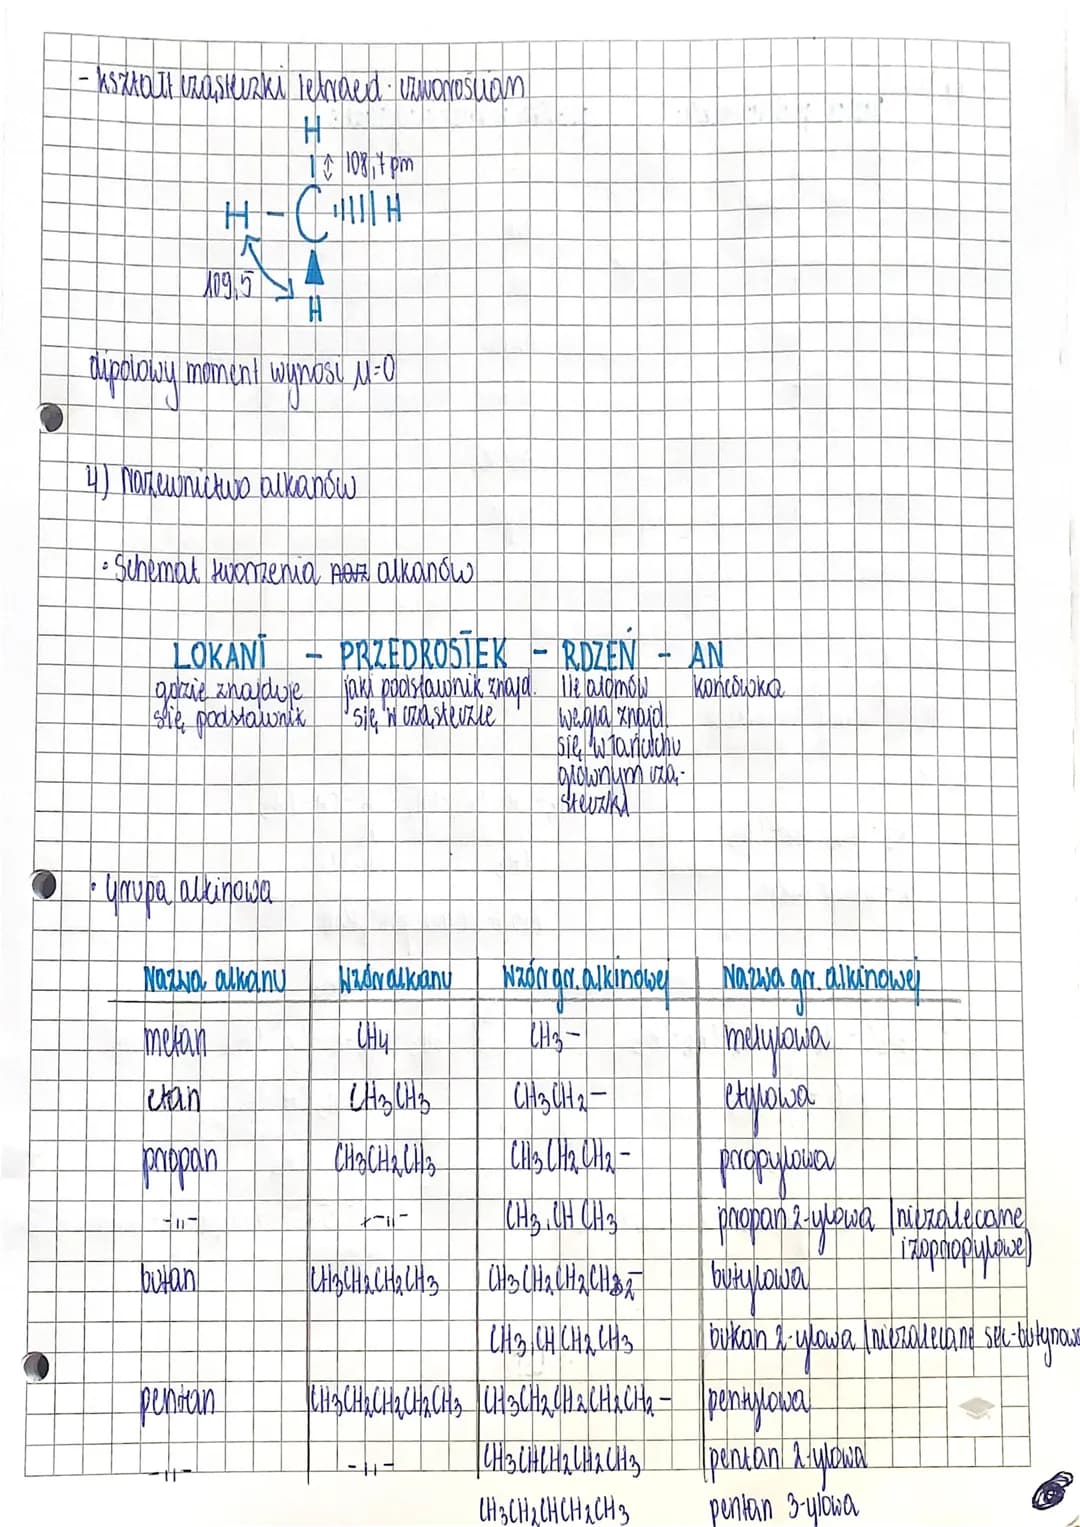 - kształt cząsteczki tetraed. czworościan
H
108,7 pm
H - C H
109,5
H
dipolowy moment wynosi μ=0
4) Nazewnictwo alkanów
• Schemat tworzenia alkanów
LOKANT - PRZEDROSTEK - RDZEŃ - AN
gdzie znajduje jaki podstawnik znajd. Ile atomów końcówka
się podstawnik się w cząsteczce węgla znajd.
się w łańcuchu
głównym czą-
steczki
• Grupa alkinowa
Nazwa alkanu Wzór alkanu Wzór gr. alkinowej Nazwa gr. alkinowej
metan CH4 CH3- metylowa
etan CH3CH3 CH3CH2- etylowa
propan CH3CH2CH3 CH3CH2CH2- propylowa
-11- -11- CH3CHCH3 propan 2-ylowa (niezalecane
izopropylowe)
butan CH3CH2CH2CH3 CH3CH2CH2CH2- butylowa
CH3CHCH2CH3 butan 2-ylowa (niezalecane sec-butynow
pentan CH3CH2CH2CH2CH3 CH3CH2CH2CH2CH2- pentylowa
-11- -11- CH3CHCH2CH2CH3 pentan 2-ylowa
CH3CH2CHCH2CH3 pentan 3-ylowa